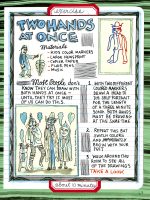 exercise
TWO HANDS
AT ONCE
Materials
- KIDS COLOR MARKERS
- LARGE CONSTRUCT
- COPIER PAPER
- FLAIR PENS
Most People don't
KNOW THEY CAN DRAW WITH
BOTH HANDS AT ONCE -
UNTIL THEY TRY IT MOST
OF US CAN DO THIS.
1. WITH TWO DIFFERENT
COLORED MARKERS
DRAW A HEAD TO
TOE SELF PORTRAIT
FOR THE LENGTH
OF ONE MINUTE
SONG. BOTH HANDS
MUST BE DRAWING
AT THE SAME TIME.
2. REPEAT THIS BUT
SWITCH COLORS
AND
BEGIN WITH YOUR
FEET
3. WALK AROUND THE
ROOM TO SEE ALL
OF THE DRAWINGS
TAKE A LOOK
about 10 minutes